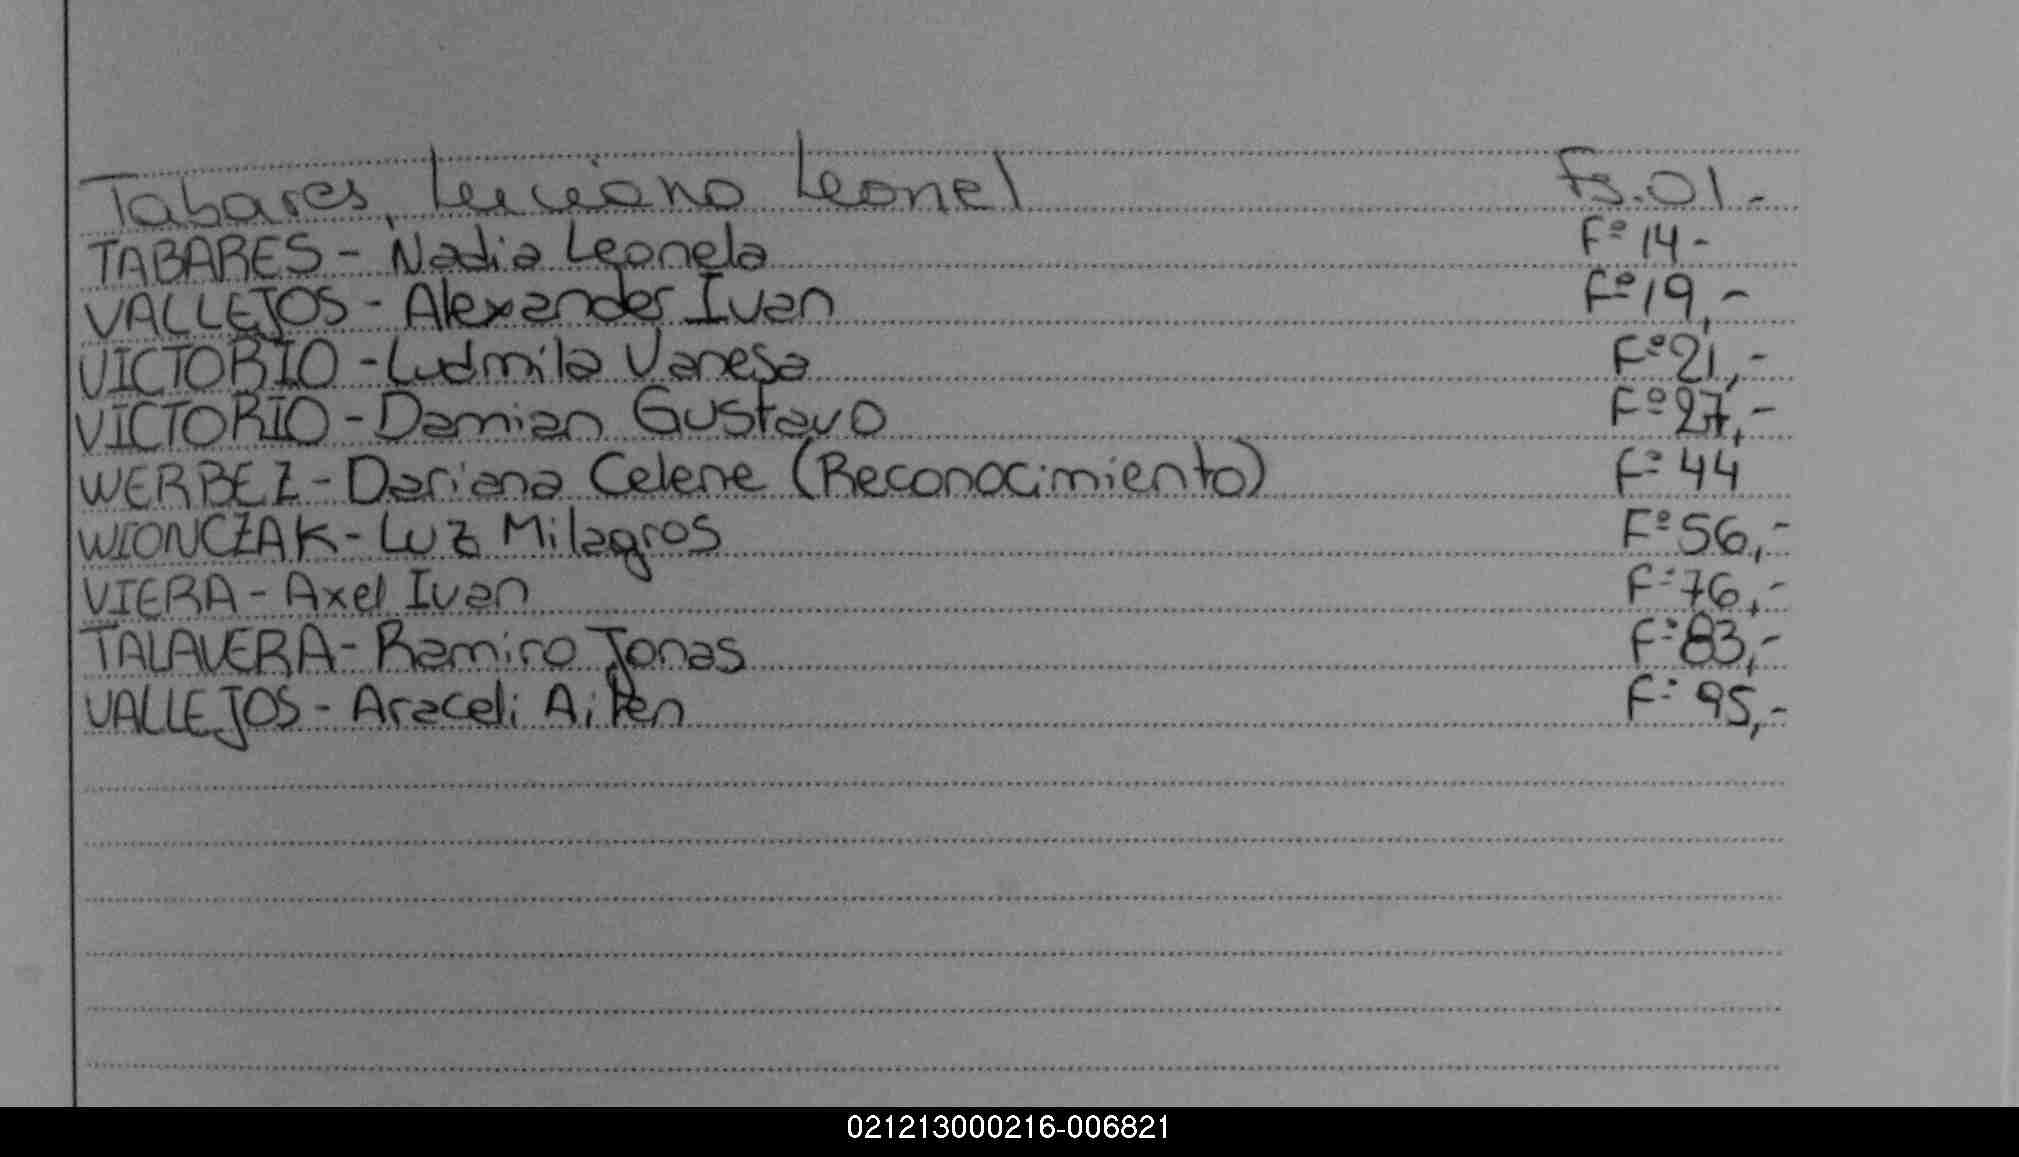 Tabares, Luciano Leonel Fs. 01.-
TABARES - Nadia Leonela Fº 14 -
VALLEJOS - Alexander Ivan Fº 19,-
VICTORIO - Ludmila Vanesa Fº 21,-
VICTORIO - Damian Gustavo Fº 27,-
WERBEZ - Dariana Celene (Reconocimiento) Fº 44
WIONCZAK - Luz Milagros Fº 56,-
VIERA - Axel Ivan Fº 76,-
TALAVERA - Ramiro Jonas Fº 83,-
VALLEJOS - Araceli Ailen Fº 95,-
021213000216-006821